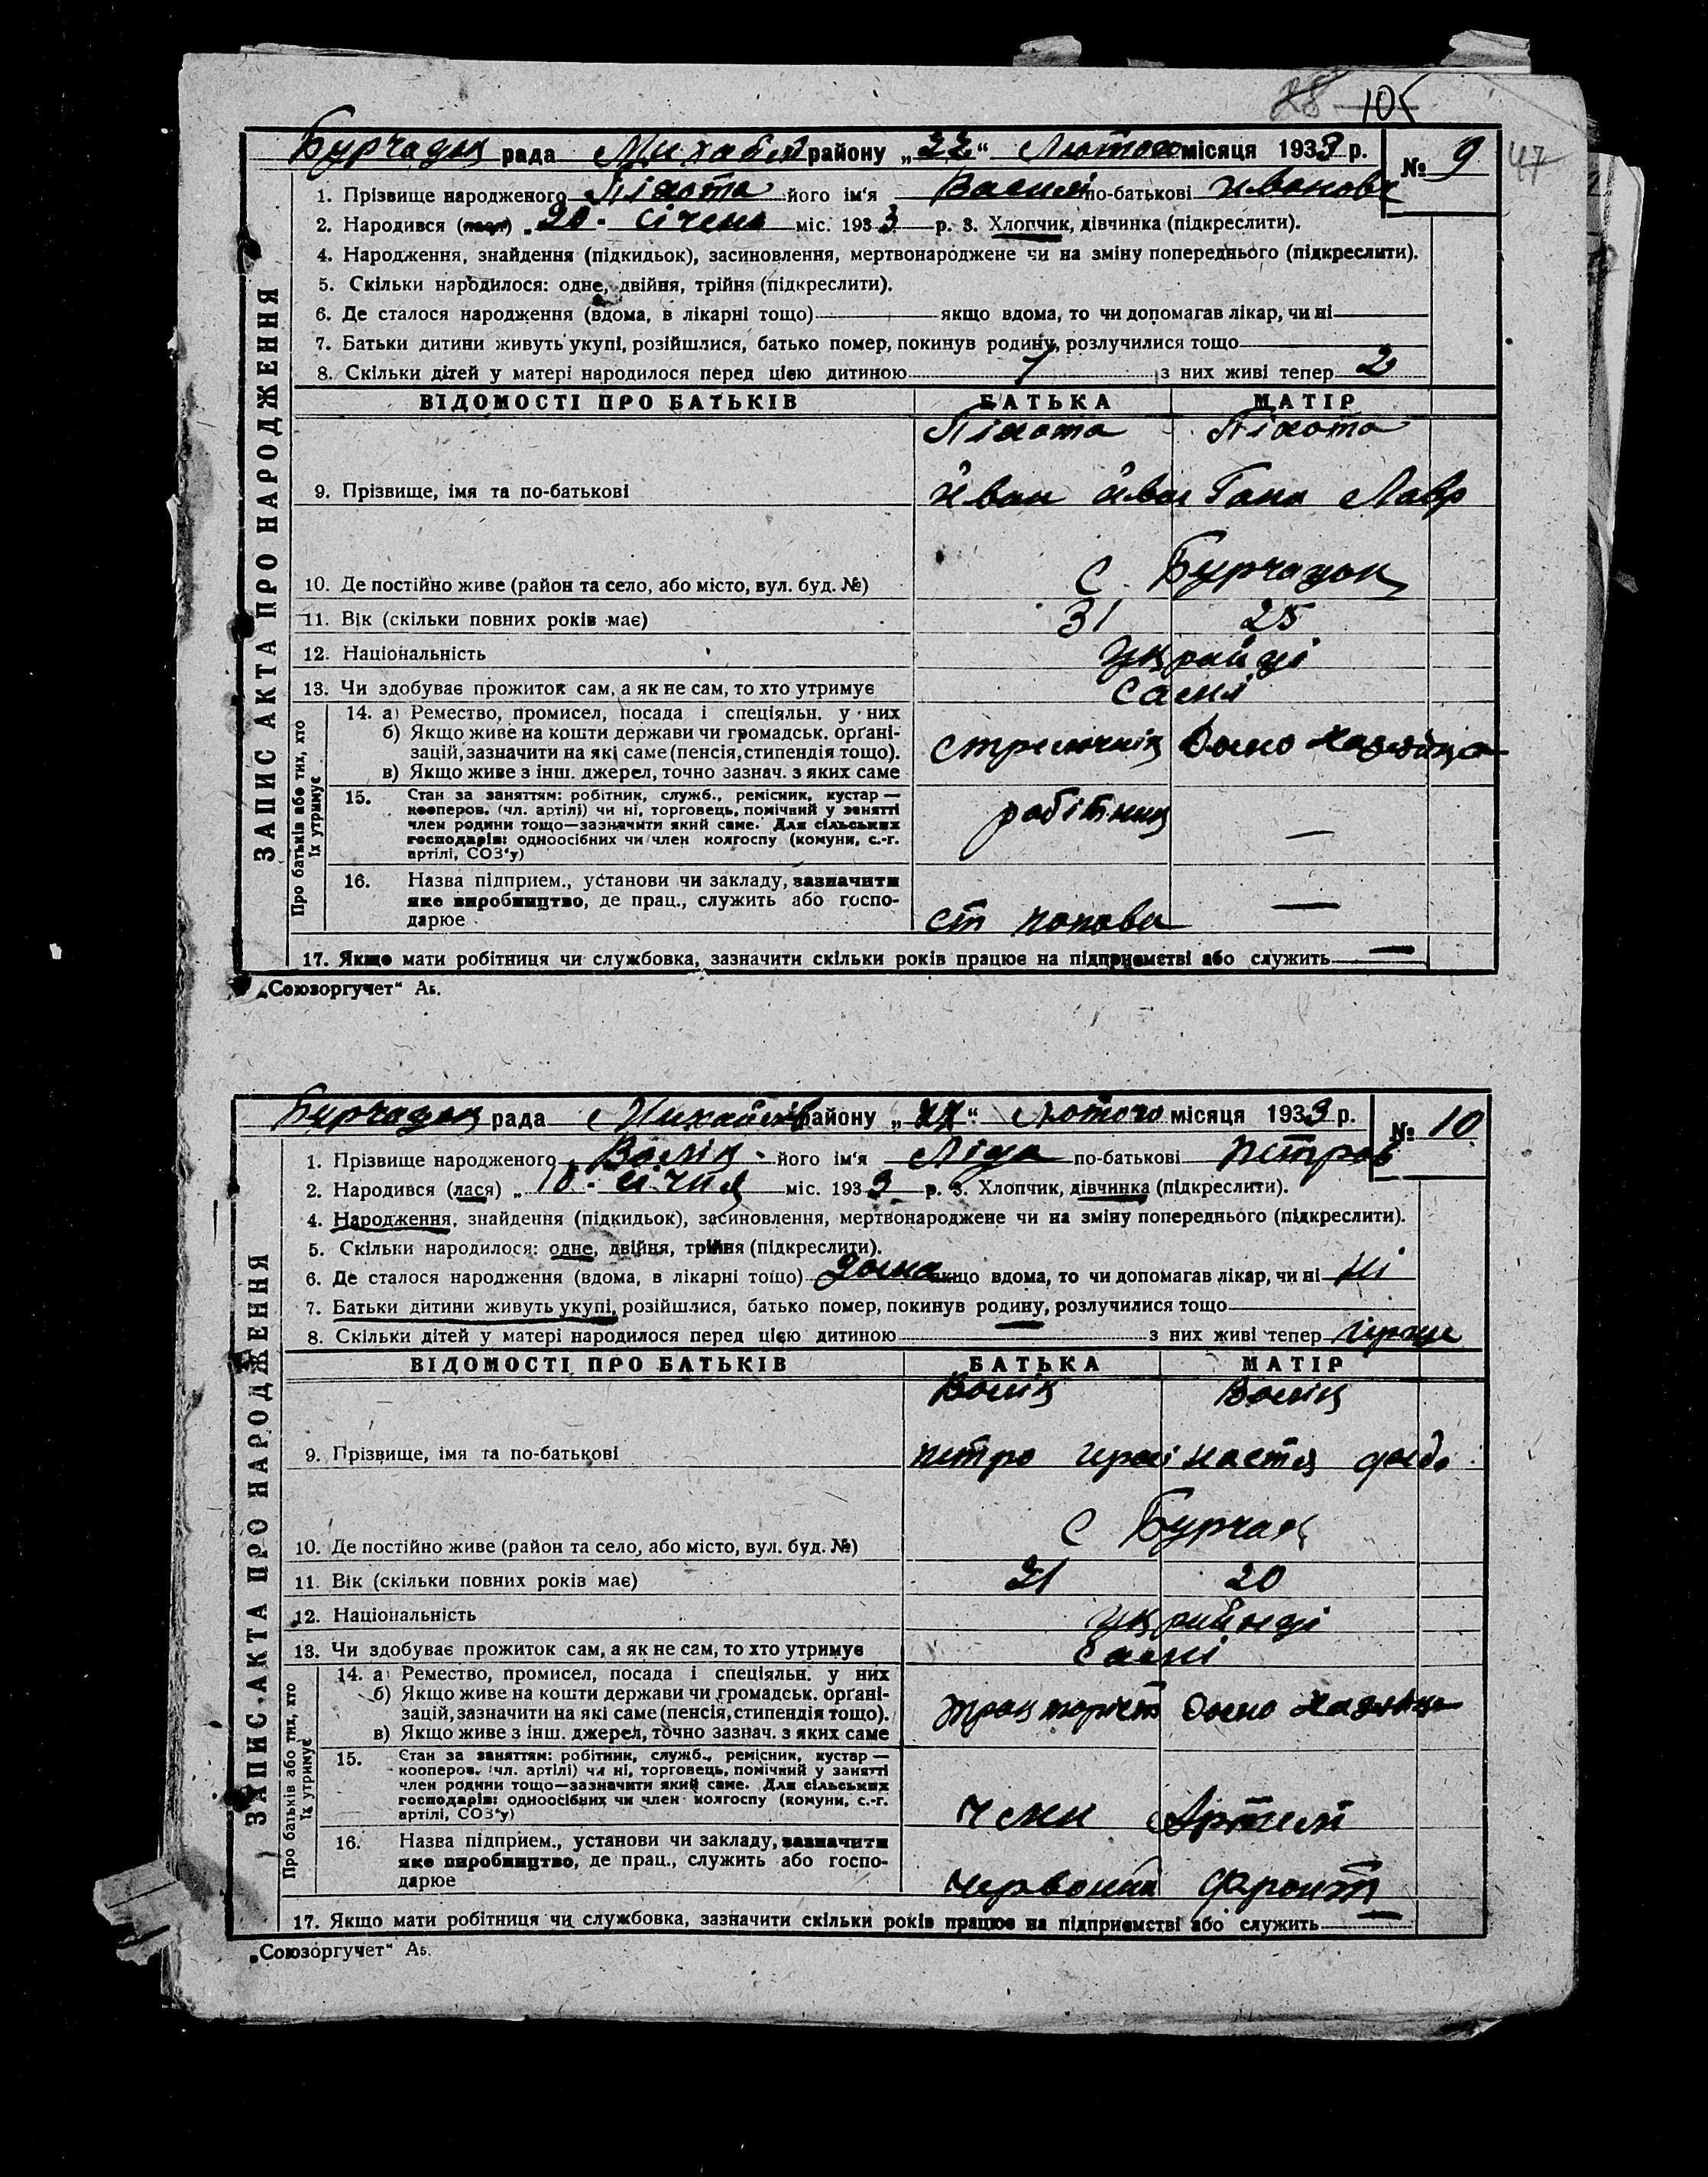 28 105
47
Бурчацьк рада Михайлів району „22“ Лютого місяця 1933 р. № 9
1. Прізвище народженого Піхота його ім‘я Василь по-батькові Иванов
2. Народився (лася) „20“ січень міс. 1933 р. 3. Хлопчик, дівчинка (підкреслити).
4. Народження, знайдення (підкидьок), засиновлення, мертвонароджене чи на зміну попереднього (підкреслити).
5. Скільки народилося: одне, двійня, трійня (підкреслити).
6. Де сталося народження (вдома, в лікарні тощо) якщо вдома, то чи допомагав лікар, чи ні
7. Батьки дитини живуть укупі, розійшлися, батько помер, покинув родину, розлучилися тощо
8. Скільки дітей у матері народилося перед цією дитиною 1 з них живі тепер 2
ВІДОМОСТІ ПРО БАТЬКІВ БАТЬКА МАТІР
Піхота Піхота
9. Прізвище, імя та по-батькові Иван Иван Гана Лавр
10. Де постійно живе (район та село, або місто, вул. буд. №) С Бурчацьк
11. Вік (скільки повних років має) 31 25
12. Національність Українці
13. Чи здобуває прожиток сам, а як не сам, то хто утримує самі
14. а) Ремество, промисел, посада і спеціяльн. у них
б) Якщо живе на кошти держави чи громадськ. орґані-
зацій, зазначити на які саме (пенсія, стипендія тощо). стрелочнік Домо хазяйка
в) Якщо живе з інш. джерел, точно зазнач. з яких саме
15. Стан за заняттям: робітник, служб., ремісник, кустар —
кооперов. (чл. артілі) чи ні, торговець, помічний у занятті робітник —
член родини тощо—зазначити який саме. Для сільських
господарів: одноосібних чи член колгоспу (комуни, с.-г.
артілі, СОЗ‘у)
16. Назва підприєм., установи чи закладу, зазначити
яке виробництво, де прац., служить або госпо- —
дарює ст попова
17. Якщо мати робітниця чи службовка, зазначити скільки років працює на підприємстві або служить —
„Союзоргучет“ Аз.
ЗАПИС АКТА ПРО НАРОДЖЕННЯ
Про батьків або тих, хто
їх утримує
Бурчацьк рада Михайлів району „22“ Лютого місяця 1933 р. № 10
1. Прізвище народженого Волік його ім‘я Ліда по-батькові Петров
2. Народився (лася) „10“ січня міс. 1933 р. 3. Хлопчик, дівчинка (підкреслити).
4. Народження, знайдення (підкидьок), засиновлення, мертвонароджене чи на зміну попереднього (підкреслити).
5. Скільки народилося: одне, двійня, трійня (підкреслити).
6. Де сталося народження (вдома, в лікарні тощо) Дома якщо вдома, то чи допомагав лікар, чи ні Ні
7. Батьки дитини живуть укупі, розійшлися, батько помер, покинув родину, розлучилися тощо
8. Скільки дітей у матері народилося перед цією дитиною — з них живі тепер
ВІДОМОСТІ ПРО БАТЬКІВ БАТЬКА МАТІР
Волік Волік
9. Прізвище, імя та по-батькові Петро Настя
10. Де постійно живе (район та село, або місто, вул. буд. №) С Бурчацьк
11. Вік (скільки повних років має) 21 20
12. Національність Українці
13. Чи здобуває прожиток сам, а як не сам, то хто утримує самі
14. а) Ремество, промисел, посада і спеціяльн. у них
б) Якщо живе на кошти держави чи громадськ. орґані-
зацій, зазначити на які саме (пенсія, стипендія тощо). тракторіст Домо хазяйка
в) Якщо живе з інш. джерел, точно зазнач. з яких саме
15. Стан за заняттям: робітник, служб., ремісник, кустар —
кооперов. (чл. артілі) чи ні, торговець, помічний у занятті
член родини тощо—зазначити який саме. Для сільських
господарів: одноосібних чи член колгоспу (комуни, с.-г.
артілі, СОЗ‘у) Члени Артелі
16. Назва підприєм., установи чи закладу, зазначити
яке виробництво, де прац., служить або госпо-
дарює Червоний Фронт
17. Якщо мати робітниця чи службовка, зазначити скільки років працює на підприємстві або служить —
„Союзоргучет“ Аз.
ЗАПИС АКТА ПРО НАРОДЖЕННЯ
Про батьків або тих, хто
їх утримує